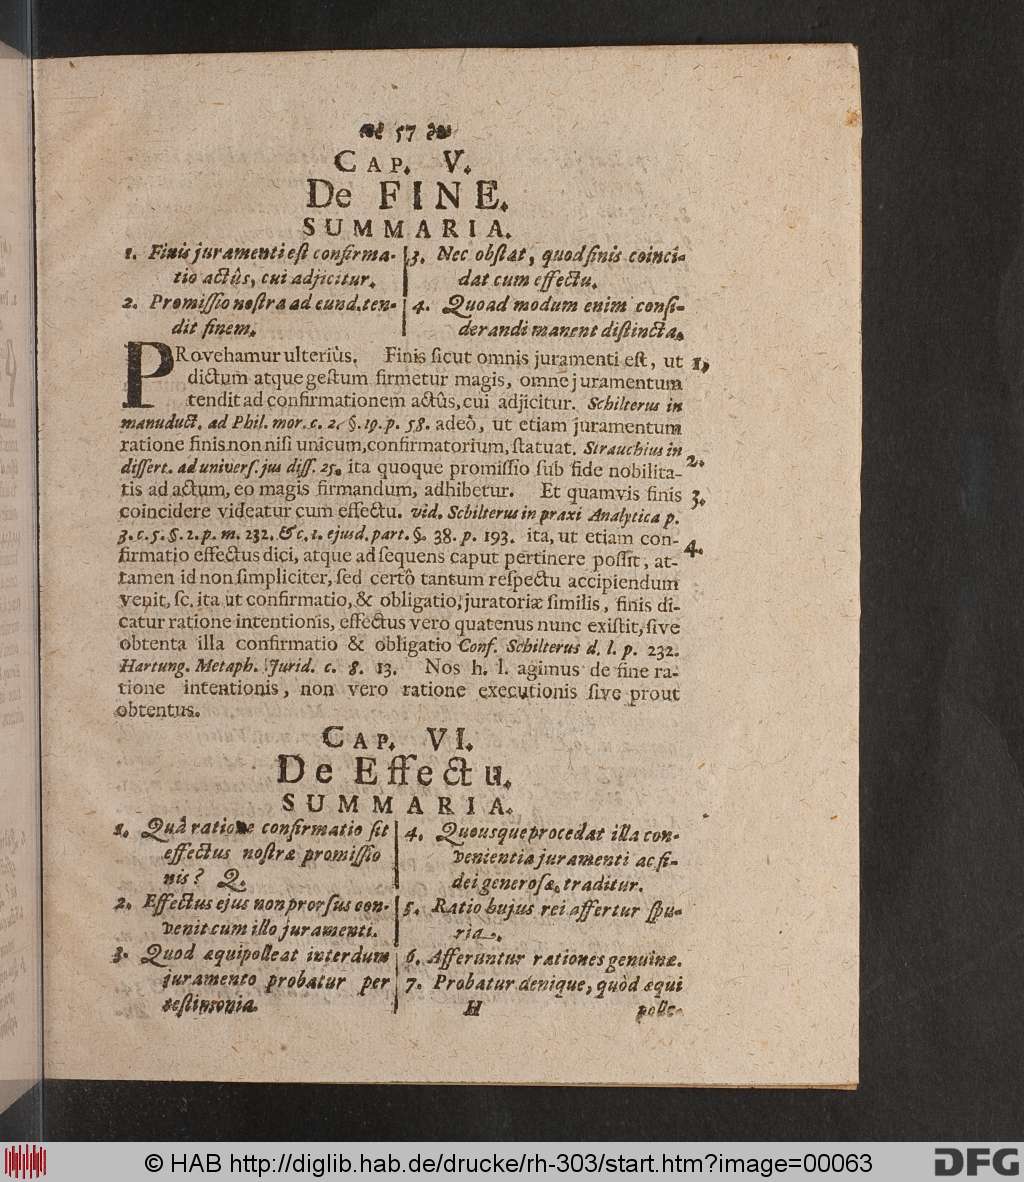 57
CAP. V.
De FINE.
SUMMARIA.
1. Finis juramenti eſt confirma-
tio actûs, cui adjicitur.
2. Promiſſio noſtra ad eund. ten-
dit finem.
3. Nec obſtat, quod finis coinci-
dat cum effectu.
4. Quoad modum enim conſi-
derandi manent diſtincta.
PRovehamur ulteriùs. Finis ſicut omnis juramenti eſt, ut 1.
dictum atque geſtum firmetur magis, omne juramentum
tendit ad confirmationem actûs, cui adjicitur. Schilterus in
manuduct. ad Phil. mor. c. 2. §. 19. p. 58. adeò, ut etiam juramentum
ratione finis non niſi unicum, confirmatorium, ſtatuat. Strauchius in
diſſert. ad univerſ. jus diſſ. 25. ita quoque promiſſio ſub fide nobilita- 2.
tis ad actum, eo magis firmandum, adhibetur. Et quamvis finis 3.
coincidere videatur cum effectu. vid. Schilterus in praxi Analytica p.
3. c. 5. §. 2. p. m. 232. & c. 1. ejusd. part. §. 38. p. 193. ita, ut etiam con-
firmatio effectus dici, atque ad ſequens caput pertinere poſſit, at- 4.
tamen id non ſimpliciter, ſed certô tantum reſpectu accipiendum
venit, ſc. ita ut confirmatio, & obligatio, juratoriæ ſimilis, finis di-
catur ratione intentionis, effectus vero quatenus nunc exiſtit, ſive
obtenta illa confirmatio & obligatio Conf. Schilterus d. l. p. 232.
Hartung. Metaph. Jurid. c. 8. 13. Nos h. l. agimus de fine ra-
tione intentionis, non vero ratione executionis ſive prout
obtentus.
CAP. VI.
De Effectu.
SUMMARIA.
1. Quâ ratione confirmatio ſit
effectus noſtræ promiſſio
nis? Q.
2. Effectus ejus non prorſus con-
venit cum illo juramenti.
3. Quod æquipolleat interdum
juramento probatur per
teſtimonia.
4. Quousque procedat illa con-
venientia juramenti ac fi-
dei generoſæ, traditur.
5. Ratio hujus rei affertur ſpu-
ria.
6. Afferuntur rationes genuinæ.
7. Probatur denique, quòd æqui
H polle-
© HAB http://diglib.hab.de/drucke/rh-303/start.htm?image=00063
DFG